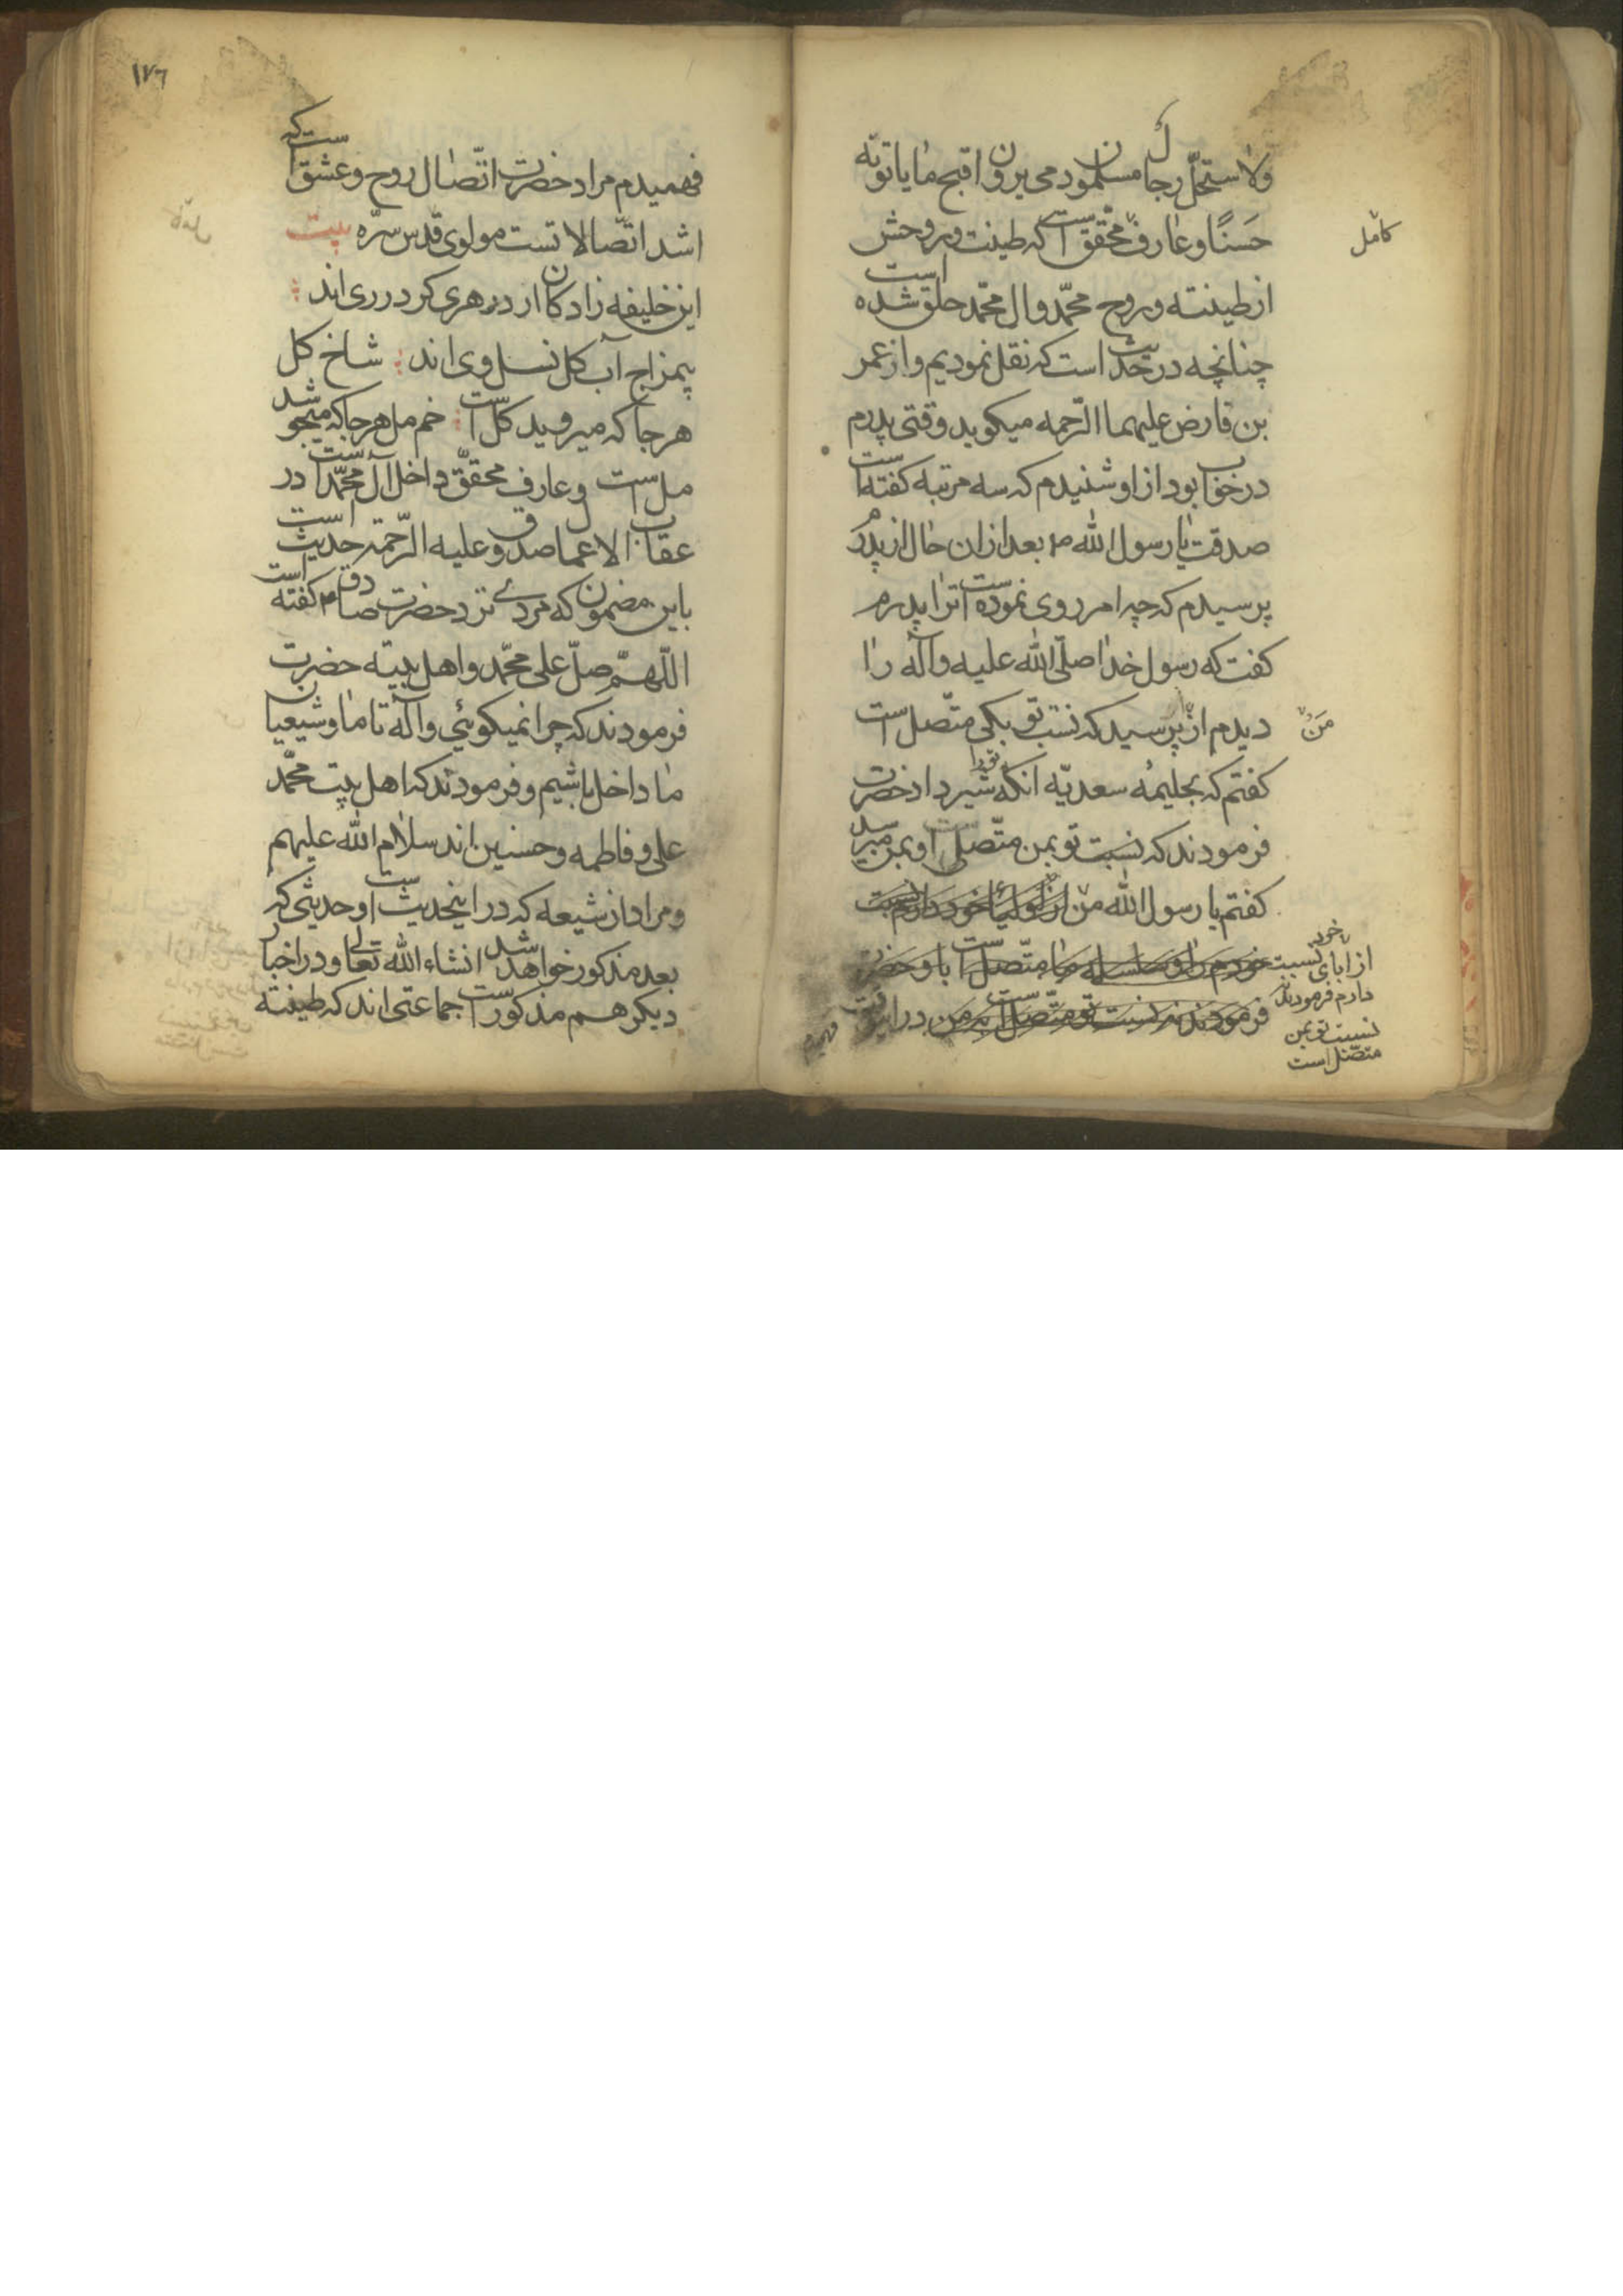 ولاستحلّ رجال مسلمون دمی یرون اقبح مایاتونه
حَسَنًا و عارف محقق است که طینت و روحش
کامل
از طینته و روح محمّد و ال محمّد خلق شده است
چنانچه در حدیث است که نقل نمودیم و از عمر
بن فارض علیهما الرّحمه میکوید وقتی پدرم
در خواب بود از او شنیدم که سه مرتبه کفته است
صدقت یا رسول الله م بعد از ان حال از پدرم
پرسیدم که چه امر روی نموده است ترا پدرم
کفت که رسول خدا صلّی الله علیه واله را
دیدم از پرسید که نسب تو بکی متّصل است
من
کفتم که بحلیمه سعدیّه انکه تو را شیر داد حضرت
فرمودند که نسبت تو بمن متّصل است او بمن میرسد
کفتم یا رسول الله من
از ابای خود نسبت
دارم فرمودند
نسبت تو بمن
متصل است
در این وقت
فهمیدم
١٧٦
فهمیدم مراد حضرت اتّصال روح و عشق است که
اشد اتّصالاتست مولوی قدس سرّه بیت
این خلیفه زادکان ار در هری کر در ری اند
بیمزاج آب کل نسل وی اند شاخ کل
هر جا که میروید کلّ است خم مل هر جا که میجوشد
مل است و عارف محققّ داخل آل محمّد است در
عقاب الاعمال صدوق علیه الرّحمة حدیث است
باین مضمون که مردے نزد حضرت صادق م کفته است
اللّهمّ صلّ علی محمّد و اهل بیته حضرت
فرمودند که چرا نمیکوئی و اله تا ما و شیعیان
ما داخل باشیم و فرمودند که اهل بیت محمّد
علی و فاطمه و حسنین اند سلام الله علیهم
و مراد از شیعه که در اینحدیث است و حدیثی که
بعد مذکور خواهد شد انشاء الله تعالی و در اخبار
دیکر هم مذکور است جماعتی اند که طینته